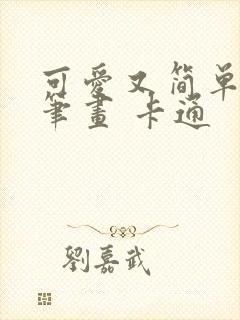 可愛又简单
筆畫 卡通
劉嘉武